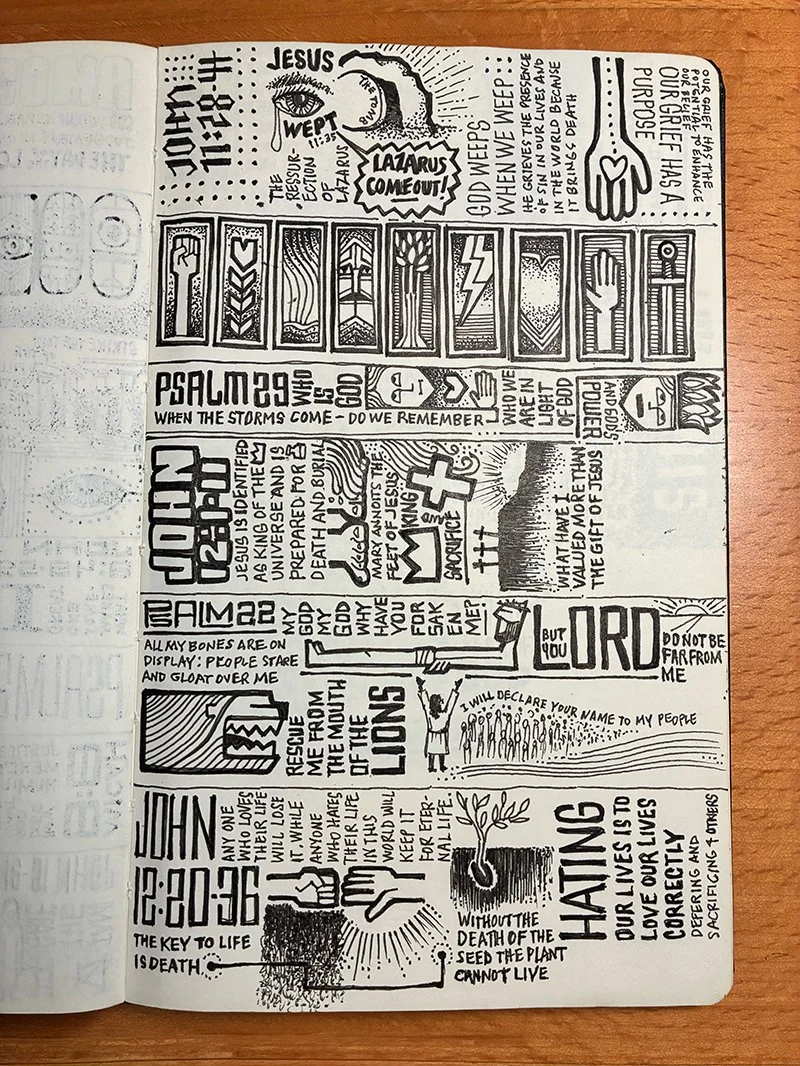 JOHN
11:28-41
JESUS
WEPT
11:35
THE
TOMB
THE
RESSUR-
ECTION
OF
LAZARUS
LAZARUS
COME OUT!
GOD WEEPS
WHEN WE WEEP
HE GRIEVES THE PRESENCE
OF SIN IN OUR LIVES AND
IN THE WORLD BECAUSE
IT BRINGS DEATH
OUR GRIEF HAS A
PURPOSE
OUR GRIEF HAS THE
POTENTIAL TO ENHANCE
OUR BELIEF
PSALM 29
WHO
IS
GOD
WHEN THE STORMS COME - DO WE REMEMBER
WHO WE
ARE IN
LIGHT
OF GOD
AND GOD'S
POWER
JOHN
12:1-11
JESUS IS IDENTIFIED
AS KING OF THE
UNIVERSE AND IS
PREPARED FOR
DEATH AND BURIAL
MARY ANNOITS THE
FEET OF JESUS
KING
AND
SACRIFICE
WHAT HAVE I
VALUED MORE THAN
THE GIFT OF JESUS
PSALM 22
MY
GOD
MY
GOD
WHY
HAVE
YOU
FOR
SAK
EN
ME?!
ALL MY BONES ARE ON
DISPLAY: PEOPLE STARE
AND GLOAT OVER ME
BUT
YOU
LORD
DO NOT BE
FAR FROM
ME
RESCUE
ME FROM
THE MOUTH
OF THE
LIONS
I WILL DECLARE YOUR NAME TO MY PEOPLE
JOHN
12:20-36
ANY ONE
WHO LOVES
THEIR LIFE
WILL LOSE
IT, WHILE
ANYONE
WHO HATES
THEIR LIFE
IN THIS
WORLD WILL
KEEP IT
FOR ETER-
NAL LIFE.
THE KEY TO LIFE
IS DEATH
WITHOUT THE
DEATH OF THE
SEED THE PLANT
CANNOT LIVE
HATING
OUR LIVES IS TO
LOVE OUR LIVES
CORRECTLY
DEFERING AND
SACRIFICING 4 OTHERS